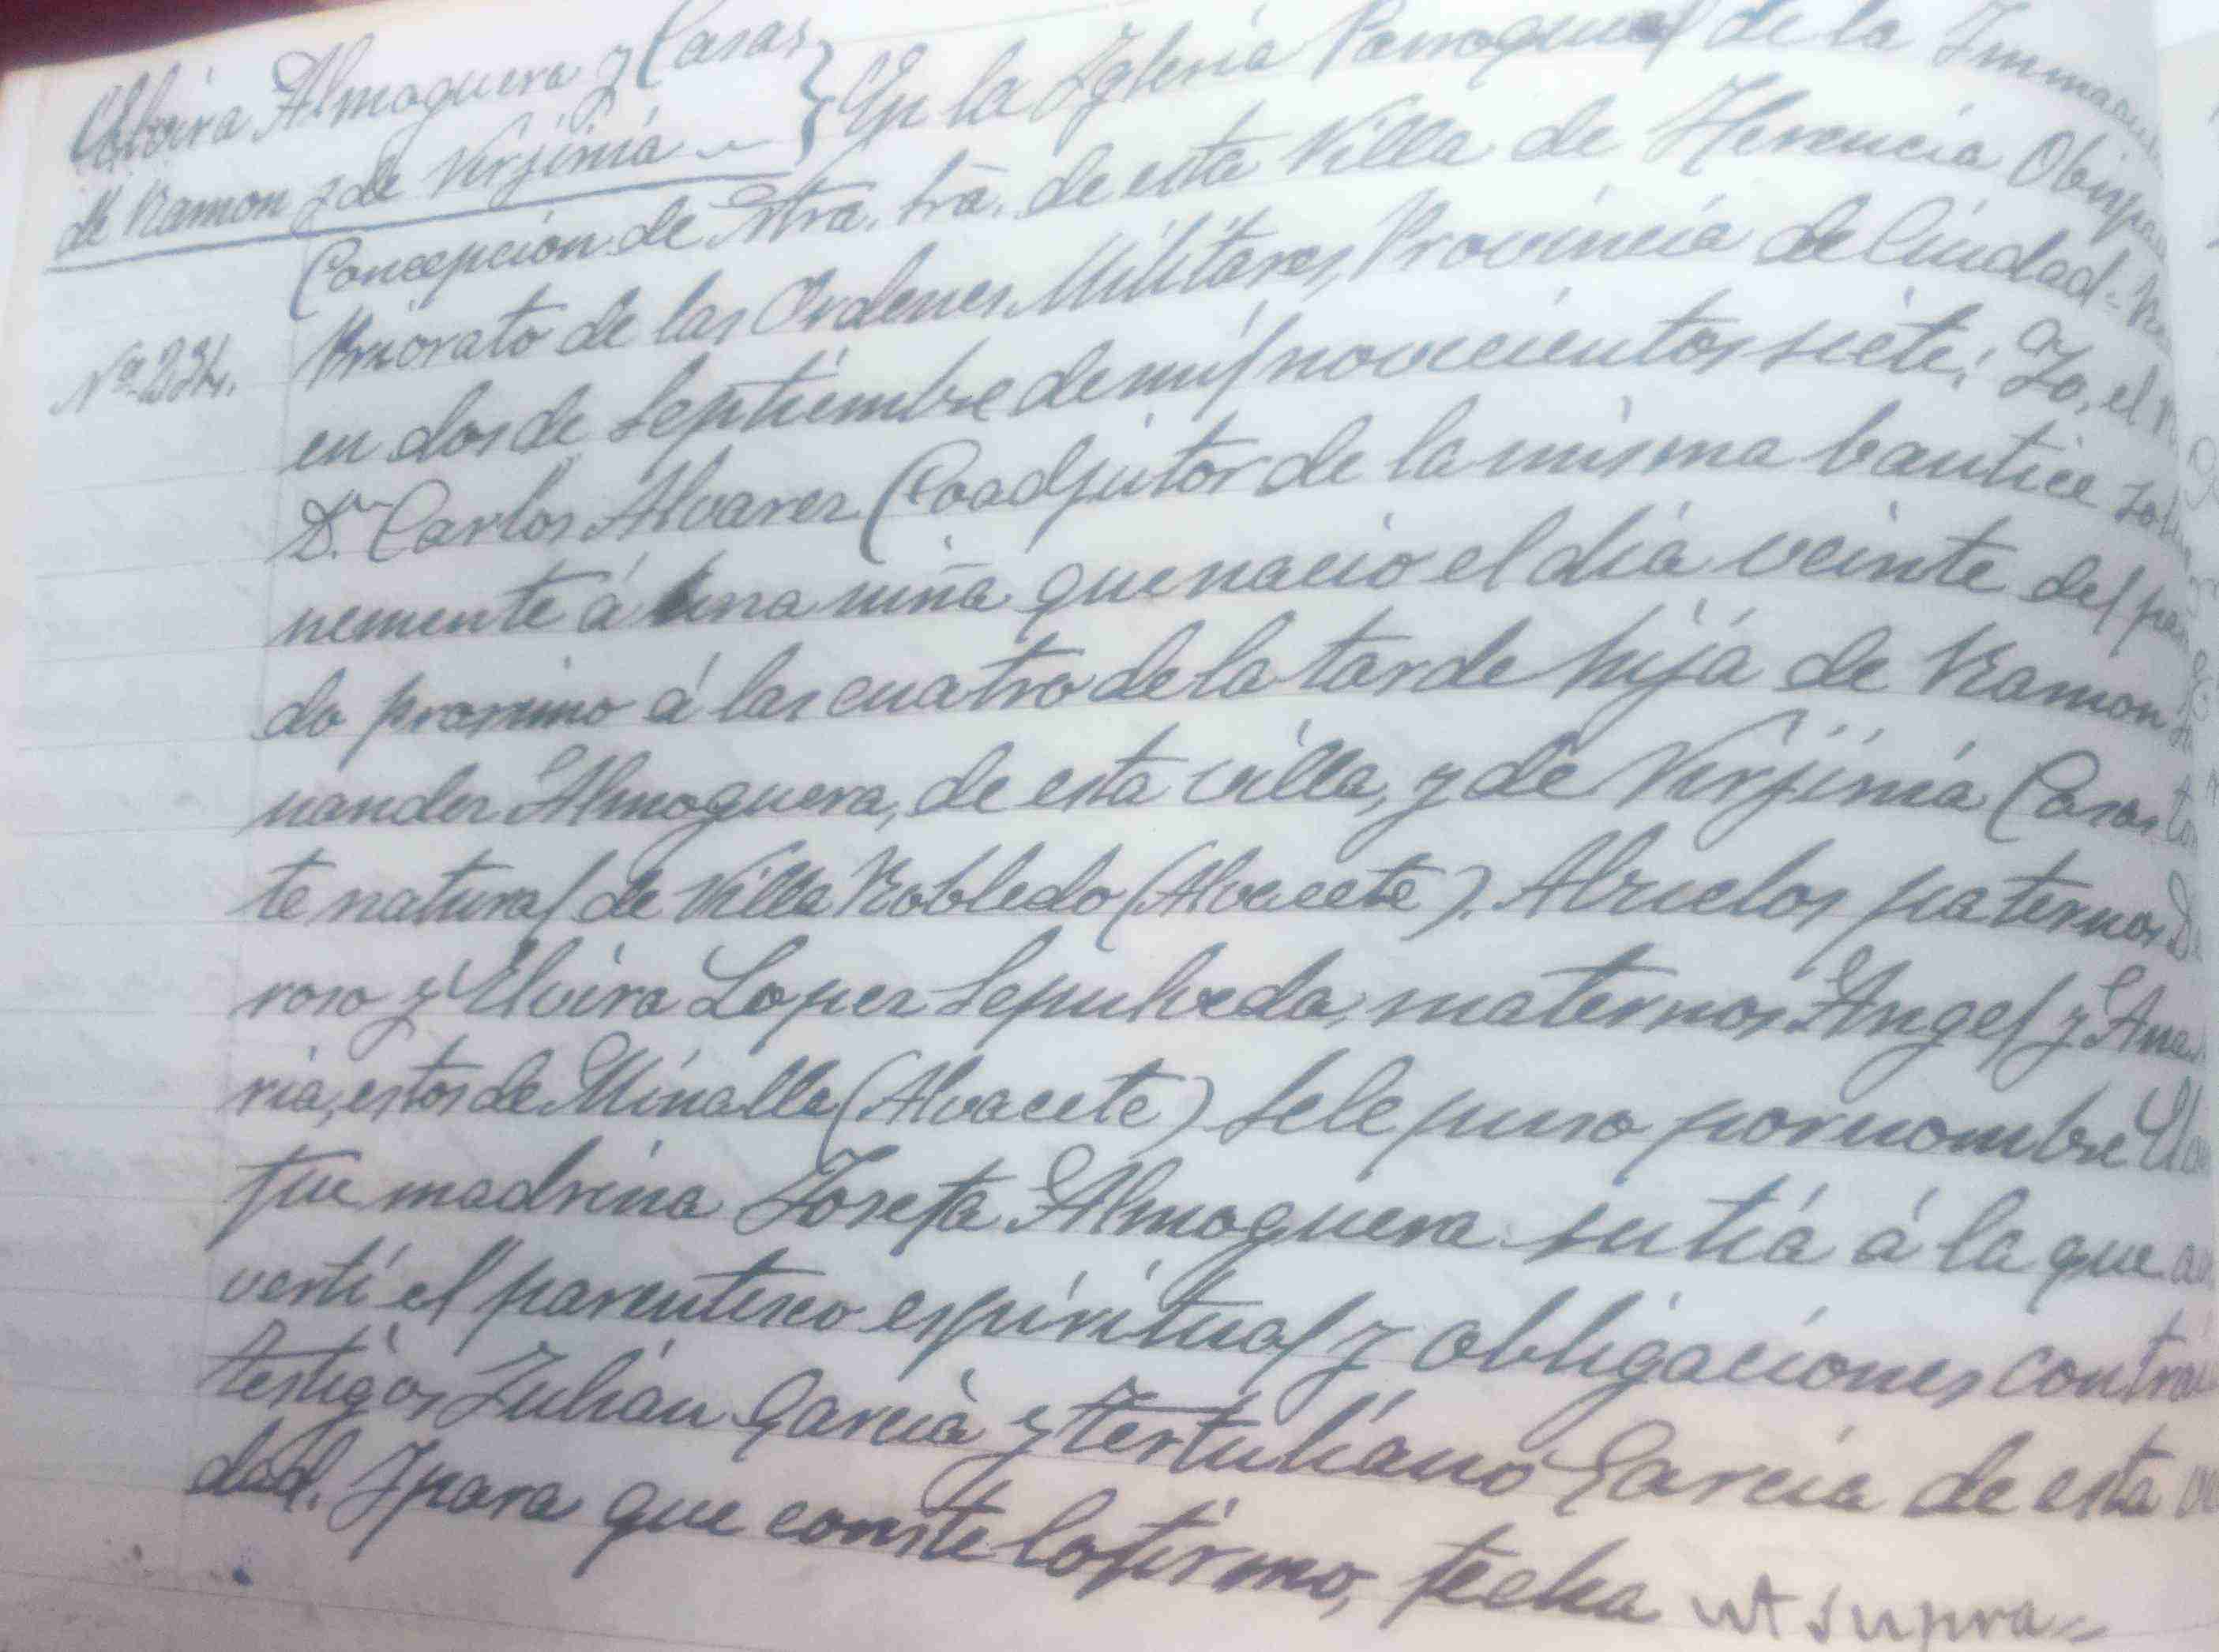 Elvira Almoguera y Casas
de Ramon y de Virjinia
Nº 234.
En la Iglesia Parroquial de la Inmacu
Concepcion de Ntra. Sra. de esta Villa de Herencia Obispa
Priorato de las Ordenes Militares, Provincia de Ciudad-Re
en dos de Septiembre de mil novecientos siete; Yo, el
Dn. Carlos Alvarez Coadjutor de la misma bautice sole
nemente á una niña que nacio el dia veinte del pasa
do proximo á las cuatro de la tarde hija de Ramon
nandez Almoguera, de esta villa, y de Virjinia Casas
te natural de Villa Robledo (Alvacete). Abuelos paternos
roso y Elvira Lopez Sepulveda, maternos Angel y Ana
ria, estos de Minalla (Alvacete) Sele puso por nombre
fue madrina Josefa Almoguera su tia á la que ad
verti el parentesco espiritual y obligaciones contrai
testigos Julian Garcia y Tertuliano Garcia de esta ve
dad. Y para que conste lo firmo, fecha ut supra